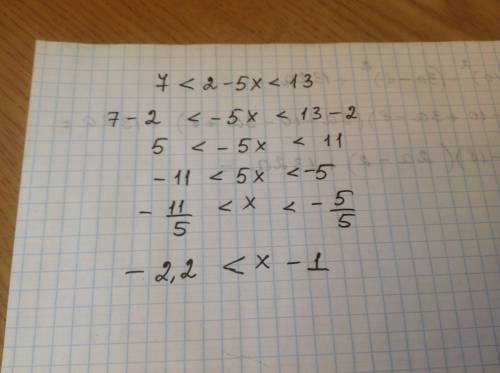 7 < 2 - 5x < 13
7 - 2 < - 5x < 13 - 2
5 < - 5x < 11
- 11 < 5x < - 5
- 11/5 < x < - 5/5
- 2,2 < x - 1